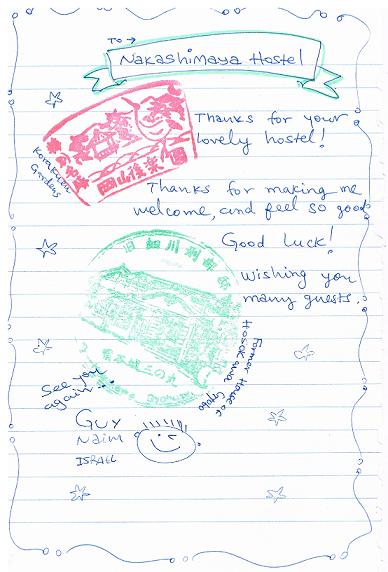 TO →
Nakashimaya Hostel
Thanks for your
lovely hostel!
岡山後楽園
Korakuen
Gardens
Thanks for making me
welcome, and feel so good
Good Luck!
Wishing you
many guests.
旧細川刑部邸
熊本城三の丸
Former House of
Hosokawa Gyobo
See you
again...
GUY
Naim
ISRAEL